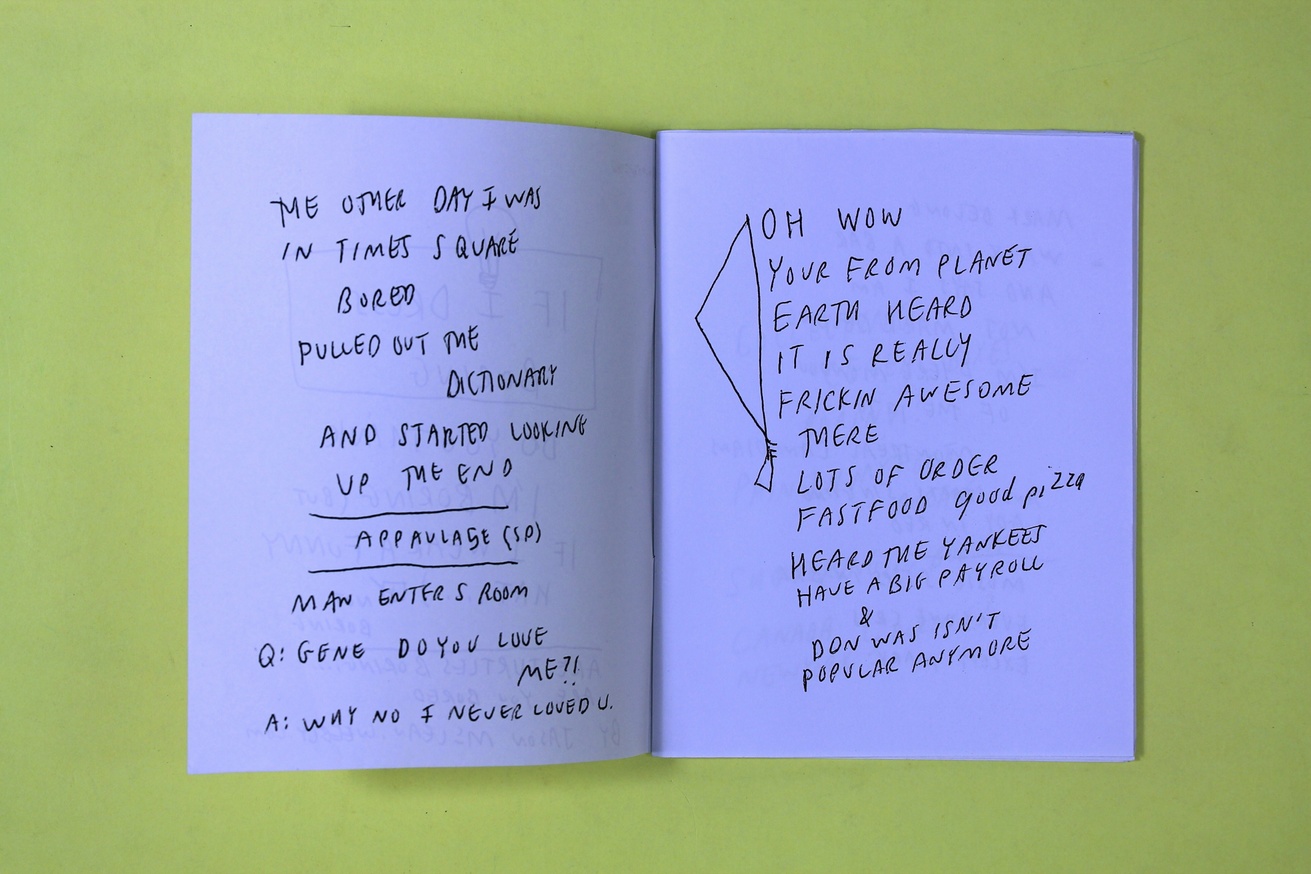 THE OTHER DAY I WAS
IN TIMES SQUARE
BORED
PULLED OUT THE
DICTIONARY
AND STARTED LOOKING
UP THE END
APPAULAGE (SP)
MAN ENTERS ROOM
Q: GENE DO YOU LOVE
ME?!
A: WHY NO I NEVER LOVED U.
OH WOW
YOUR FROM PLANET
EARTH HEARD
IT IS REALLY
FRICKIN AWESOME
THERE
LOTS OF ORDER
FASTFOOD good pizza
HEARD THE YANKEES
HAVE A BIG PAYROLL
&
DON WAS ISN'T
POPULAR ANYMORE